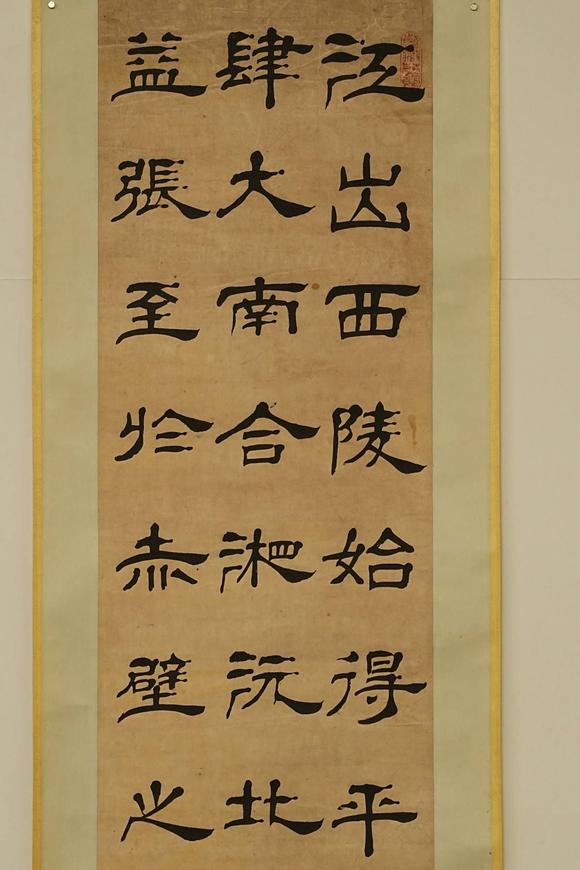 江出西陵始得平
肆大南合湘沅北
益張至於赤壁之